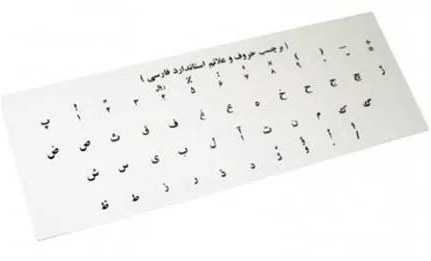 ( برچسب حروف و علائم استاندارد فارسی )
ریال ٪ ×
پ ۱ ۲ ۳ ۴ ۵ ۶ ۷ ۸ ۹
چ ج ح خ ه ع غ ف ق ث ص ض
گ ک م ن ت آ ل ب ی س ش
و د ذ ر ز ط ظ